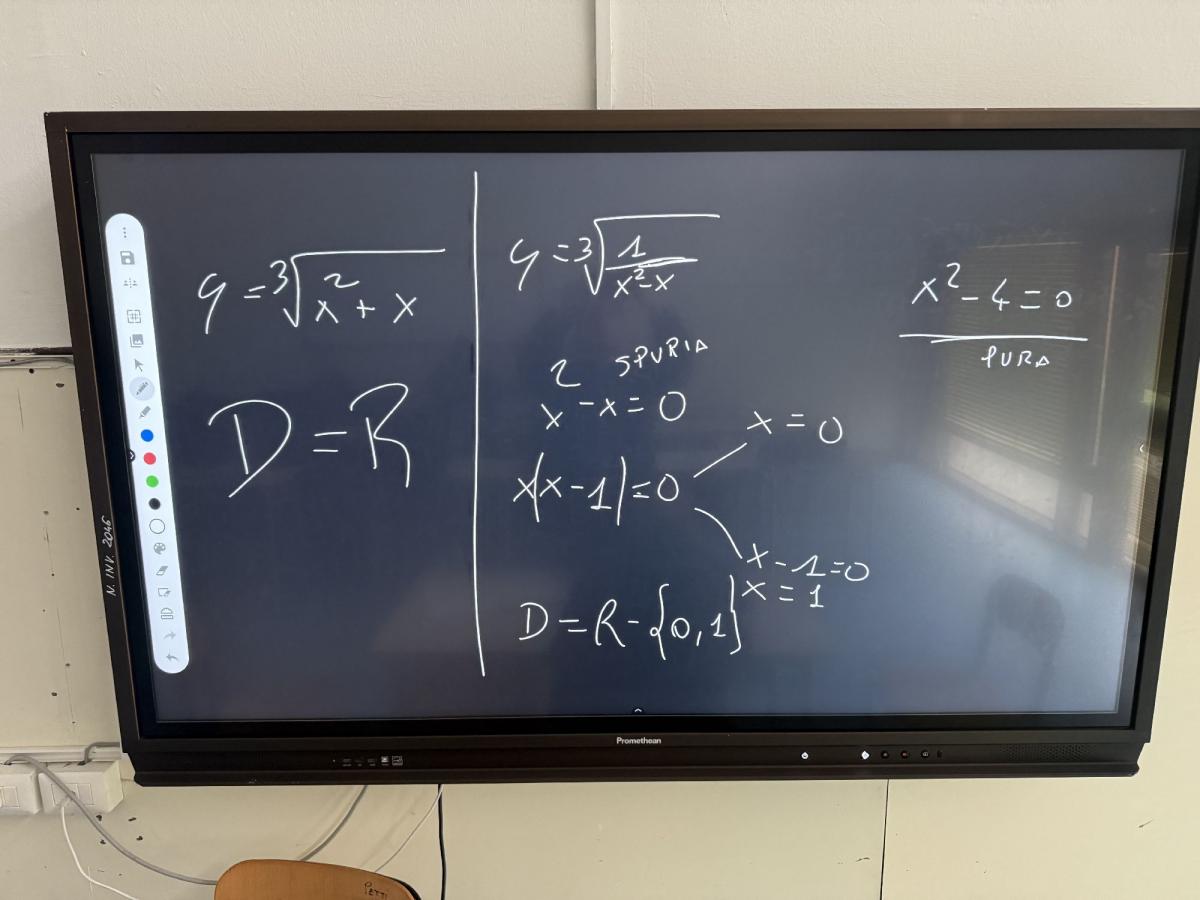 y = ∛(x² + x)
D = R
y = ∛(1/(x² - x))
SPURIA
x² - x = 0
x(x - 1) = 0
x = 0
x - 1 = 0
x = 1
D = R - {0, 1}
x² - 4 = 0
PURA
N. INV. 2046
Promethean